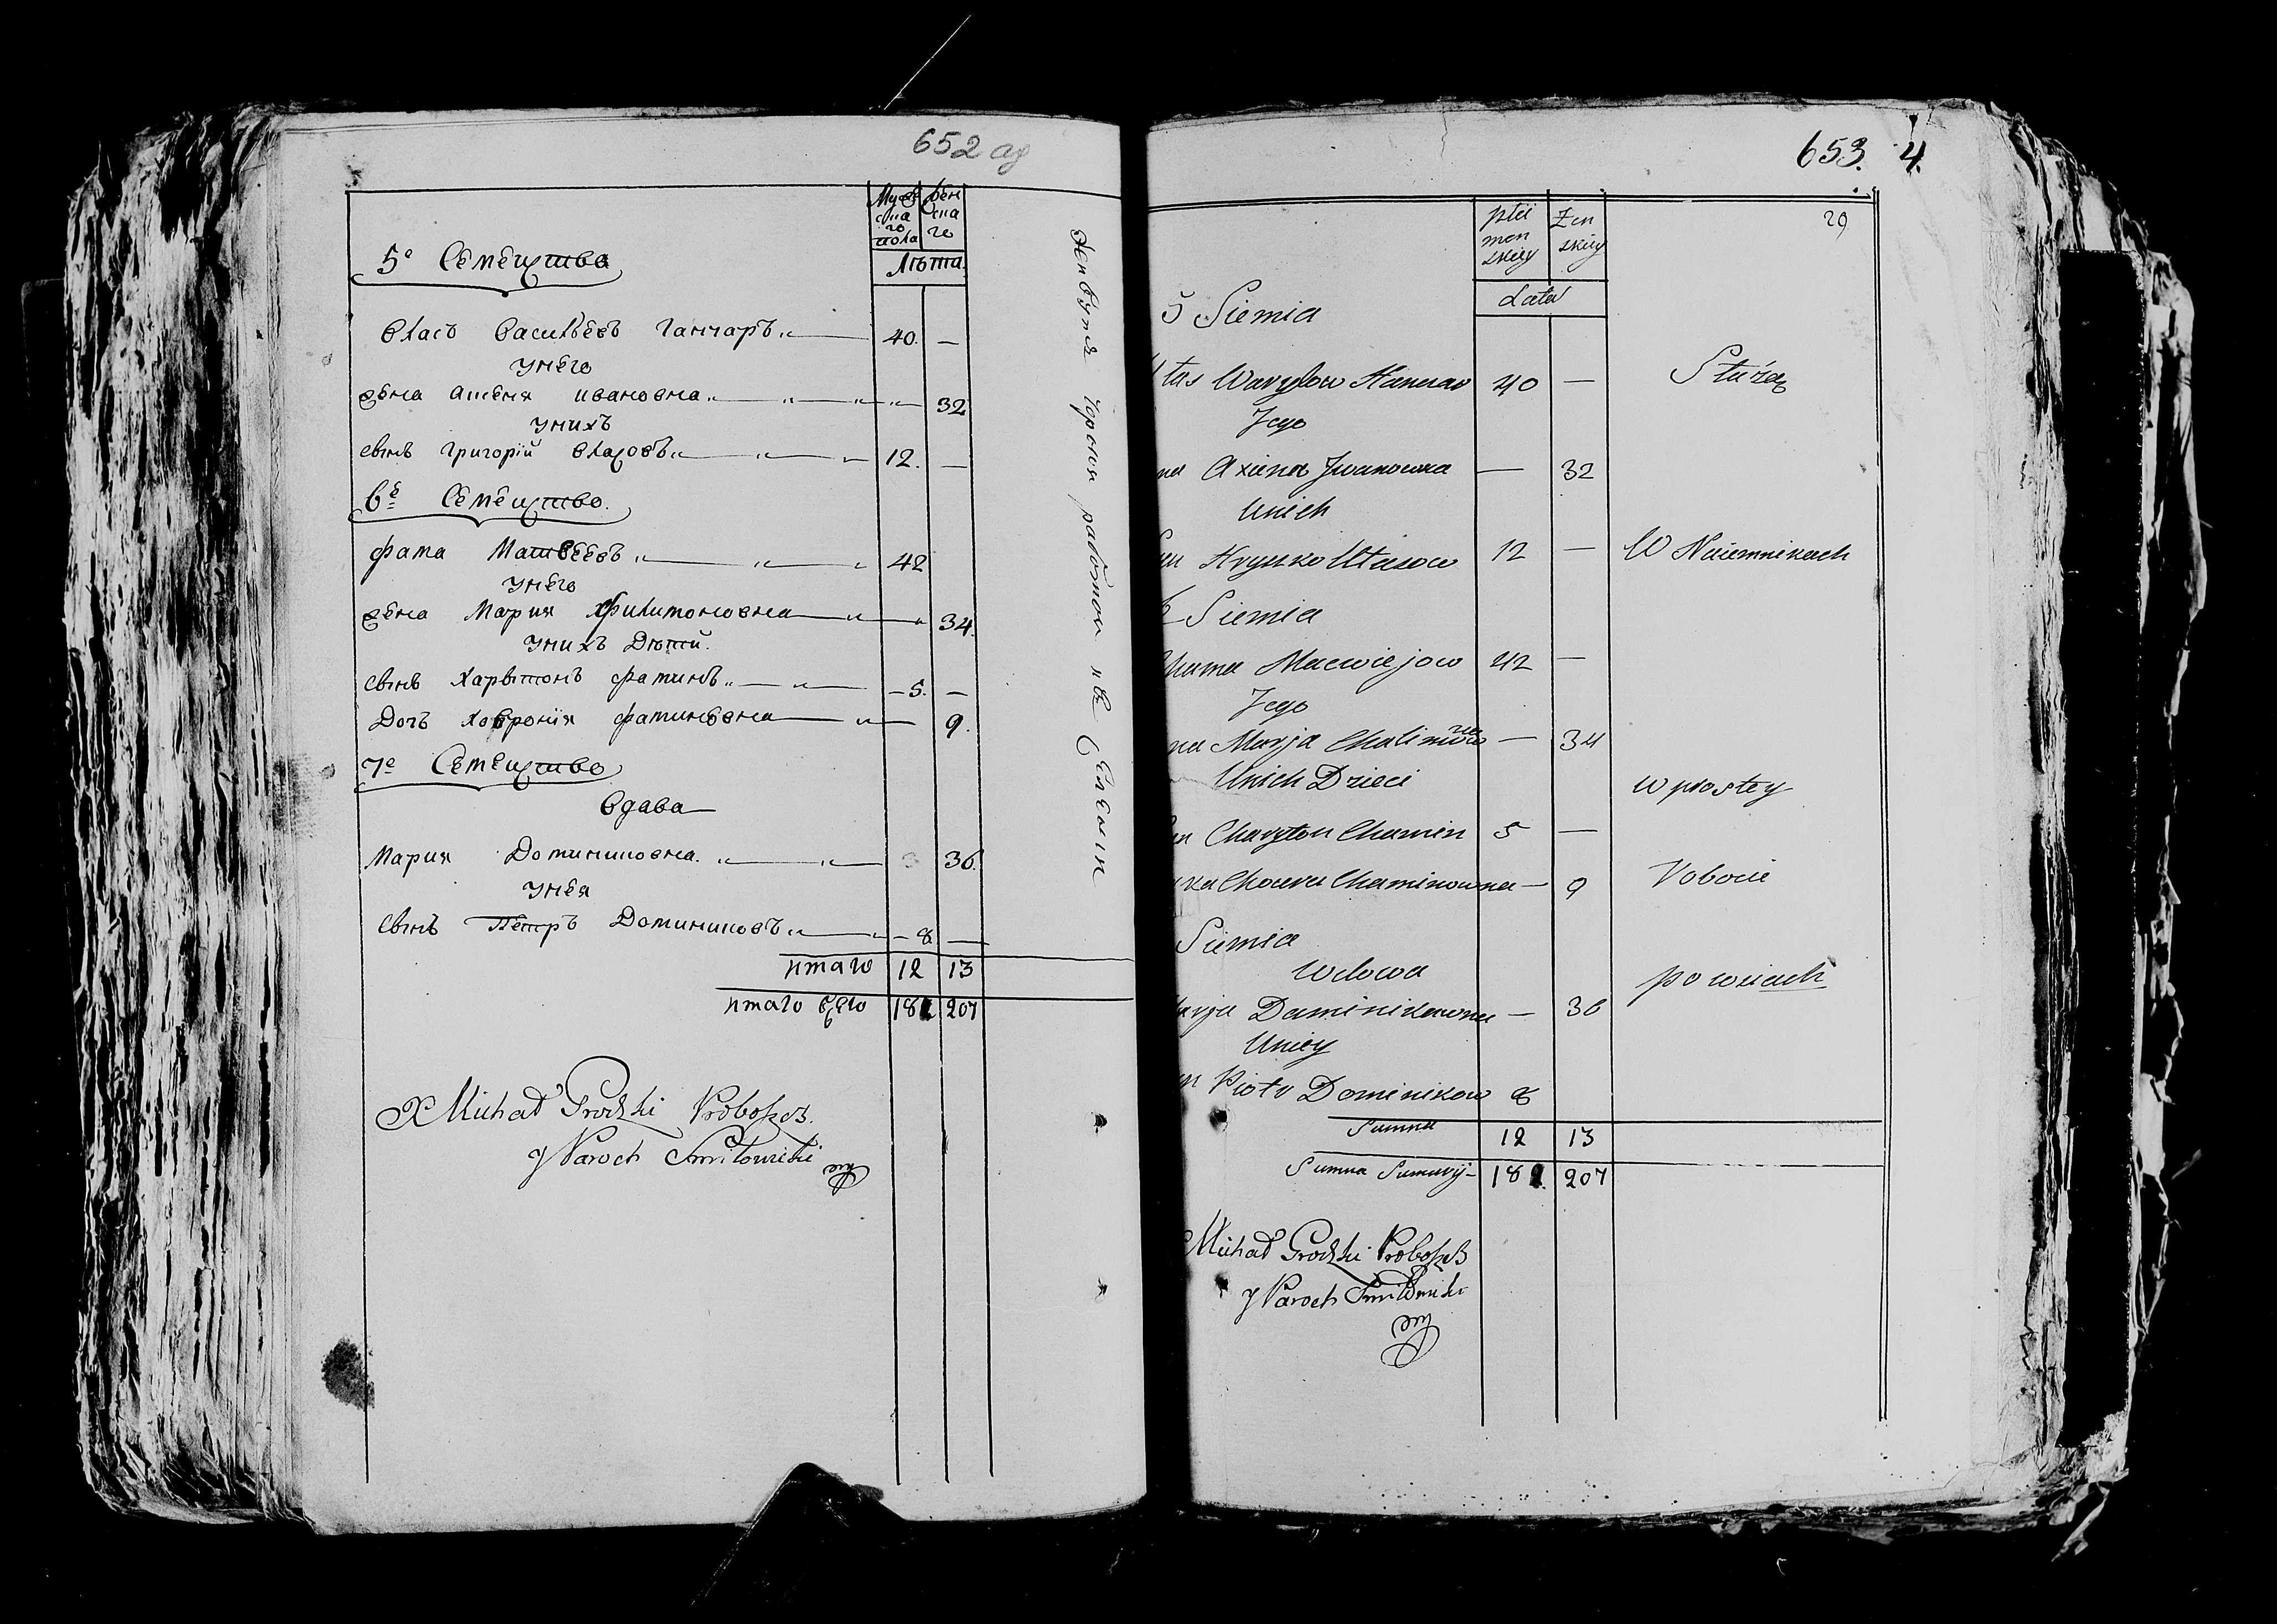 652
Мужескаго пола
Женскаго
Лѣта
5е Семейство
Власъ Васильевъ Ганчаръ 40. —
Унего
Жена Аксеня Ивановна 32
Унихъ
Сынъ Григорій Власовъ 12. —
6е Семейство.
Фама Матвеевъ 42
Унего
Жена Мария Филимоновна 34.
Унихъ Дѣтей.
Сынъ Харытонъ Фаминъ — 5. —
Дочъ Ховронія Фаминовна 9.
7е Семейство
Вдава
Мария Доминиковна 36.
Унея
Сынъ Петръ Доминиковъ — 8 —
Итаго 12 13
Итаго всего 18 207
X Michał Grodzki Proboszcz.
y Paroch Smiłowicki
653. 4.
29
płci menskiey
Żenskiey
Lata
5 Siemia
Wasylow Hanczar 40 —
Służą
Jego
Axiena Iwanowna — 32
Unich
Hryszko Własow 12 —
W Naiemnikach
Siemia
Chama Maciejow 42 —
Jego
Marja Chalimowna — 34
Unich Dzieci
w prostey
Charyton Chamin 5 —
Chowra Chaminowna — 9
Robocie
Siemia
Wdowa
po wsiach
Marja Daminikowna — 36
Uniey
Piotr Dominikow 8
Summa 12 13
Summa Summary — 18 207
Michał Grodzki Proboszcz
y Paroch Smiłowicki